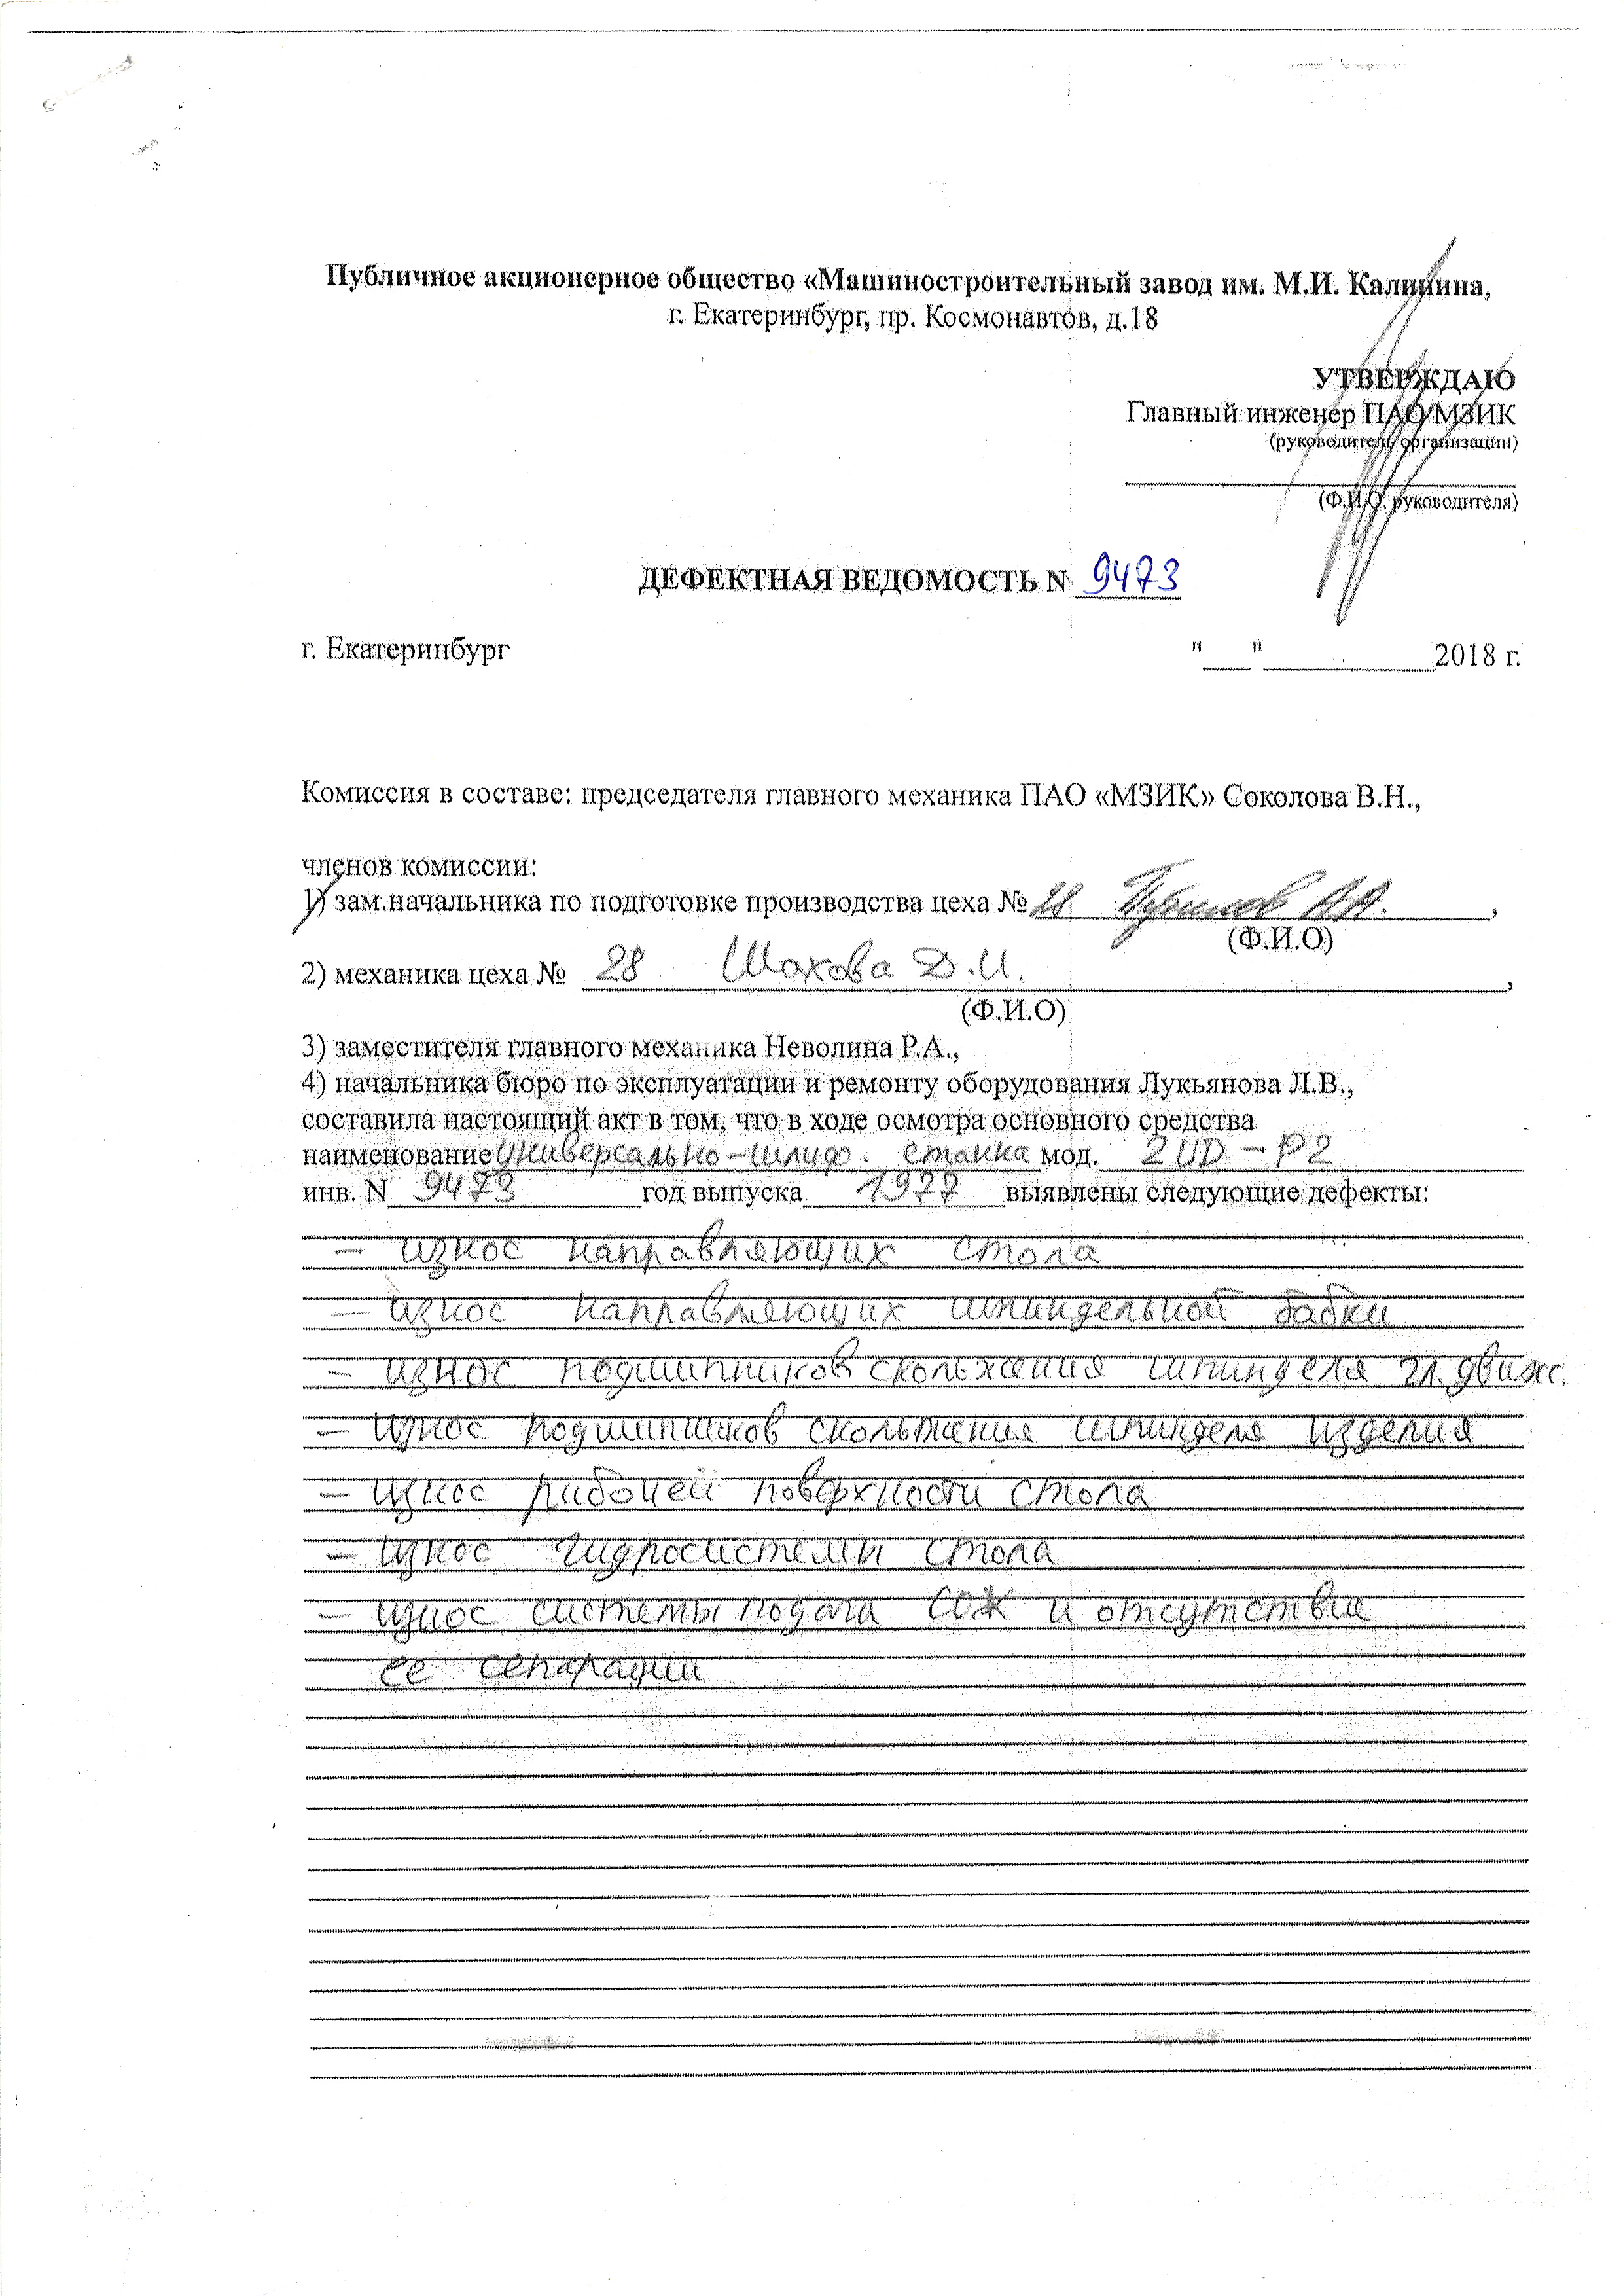 Публичное акционерное общество «Машиностроительный завод им. М.И. Калинина,
г. Екатеринбург, пр. Космонавтов, д.18
УТВЕРЖДАЮ
Главный инженер ПАО МЗИК
(руководитель организации)
(Ф.И.О. руководителя)
ДЕФЕКТНАЯ ВЕДОМОСТЬ N 9473
г. Екатеринбург "___"____________2018 г.
Комиссия в составе: председателя главного механика ПАО «МЗИК» Соколова В.Н.,
членов комиссии:
1) зам.начальника по подготовке производства цеха №
(Ф.И.О)
2) механика цеха № 28 Шахова Д.И.,
(Ф.И.О)
3) заместителя главного механика Неволина Р.А.,
4) начальника бюро по эксплуатации и ремонту оборудования Лукьянова Л.В.,
составила настоящий акт в том, что в ходе осмотра основного средства
наименование универсально-шлиф. станка мод. 2UD-P2
инв. N 9473 год выпуска 1977 выявлены следующие дефекты:
— износ направляющих стола
— износ направляющих шпиндельной бабки
— износ подшипников скольжения шпинделя гл. движ.
— износ подшипников скольжения шпинделя изделия
— износ рабочей поверхности стола
— износ гидросистемы стола
— износ системы подачи СОЖ и отсутствие
ее сепарации